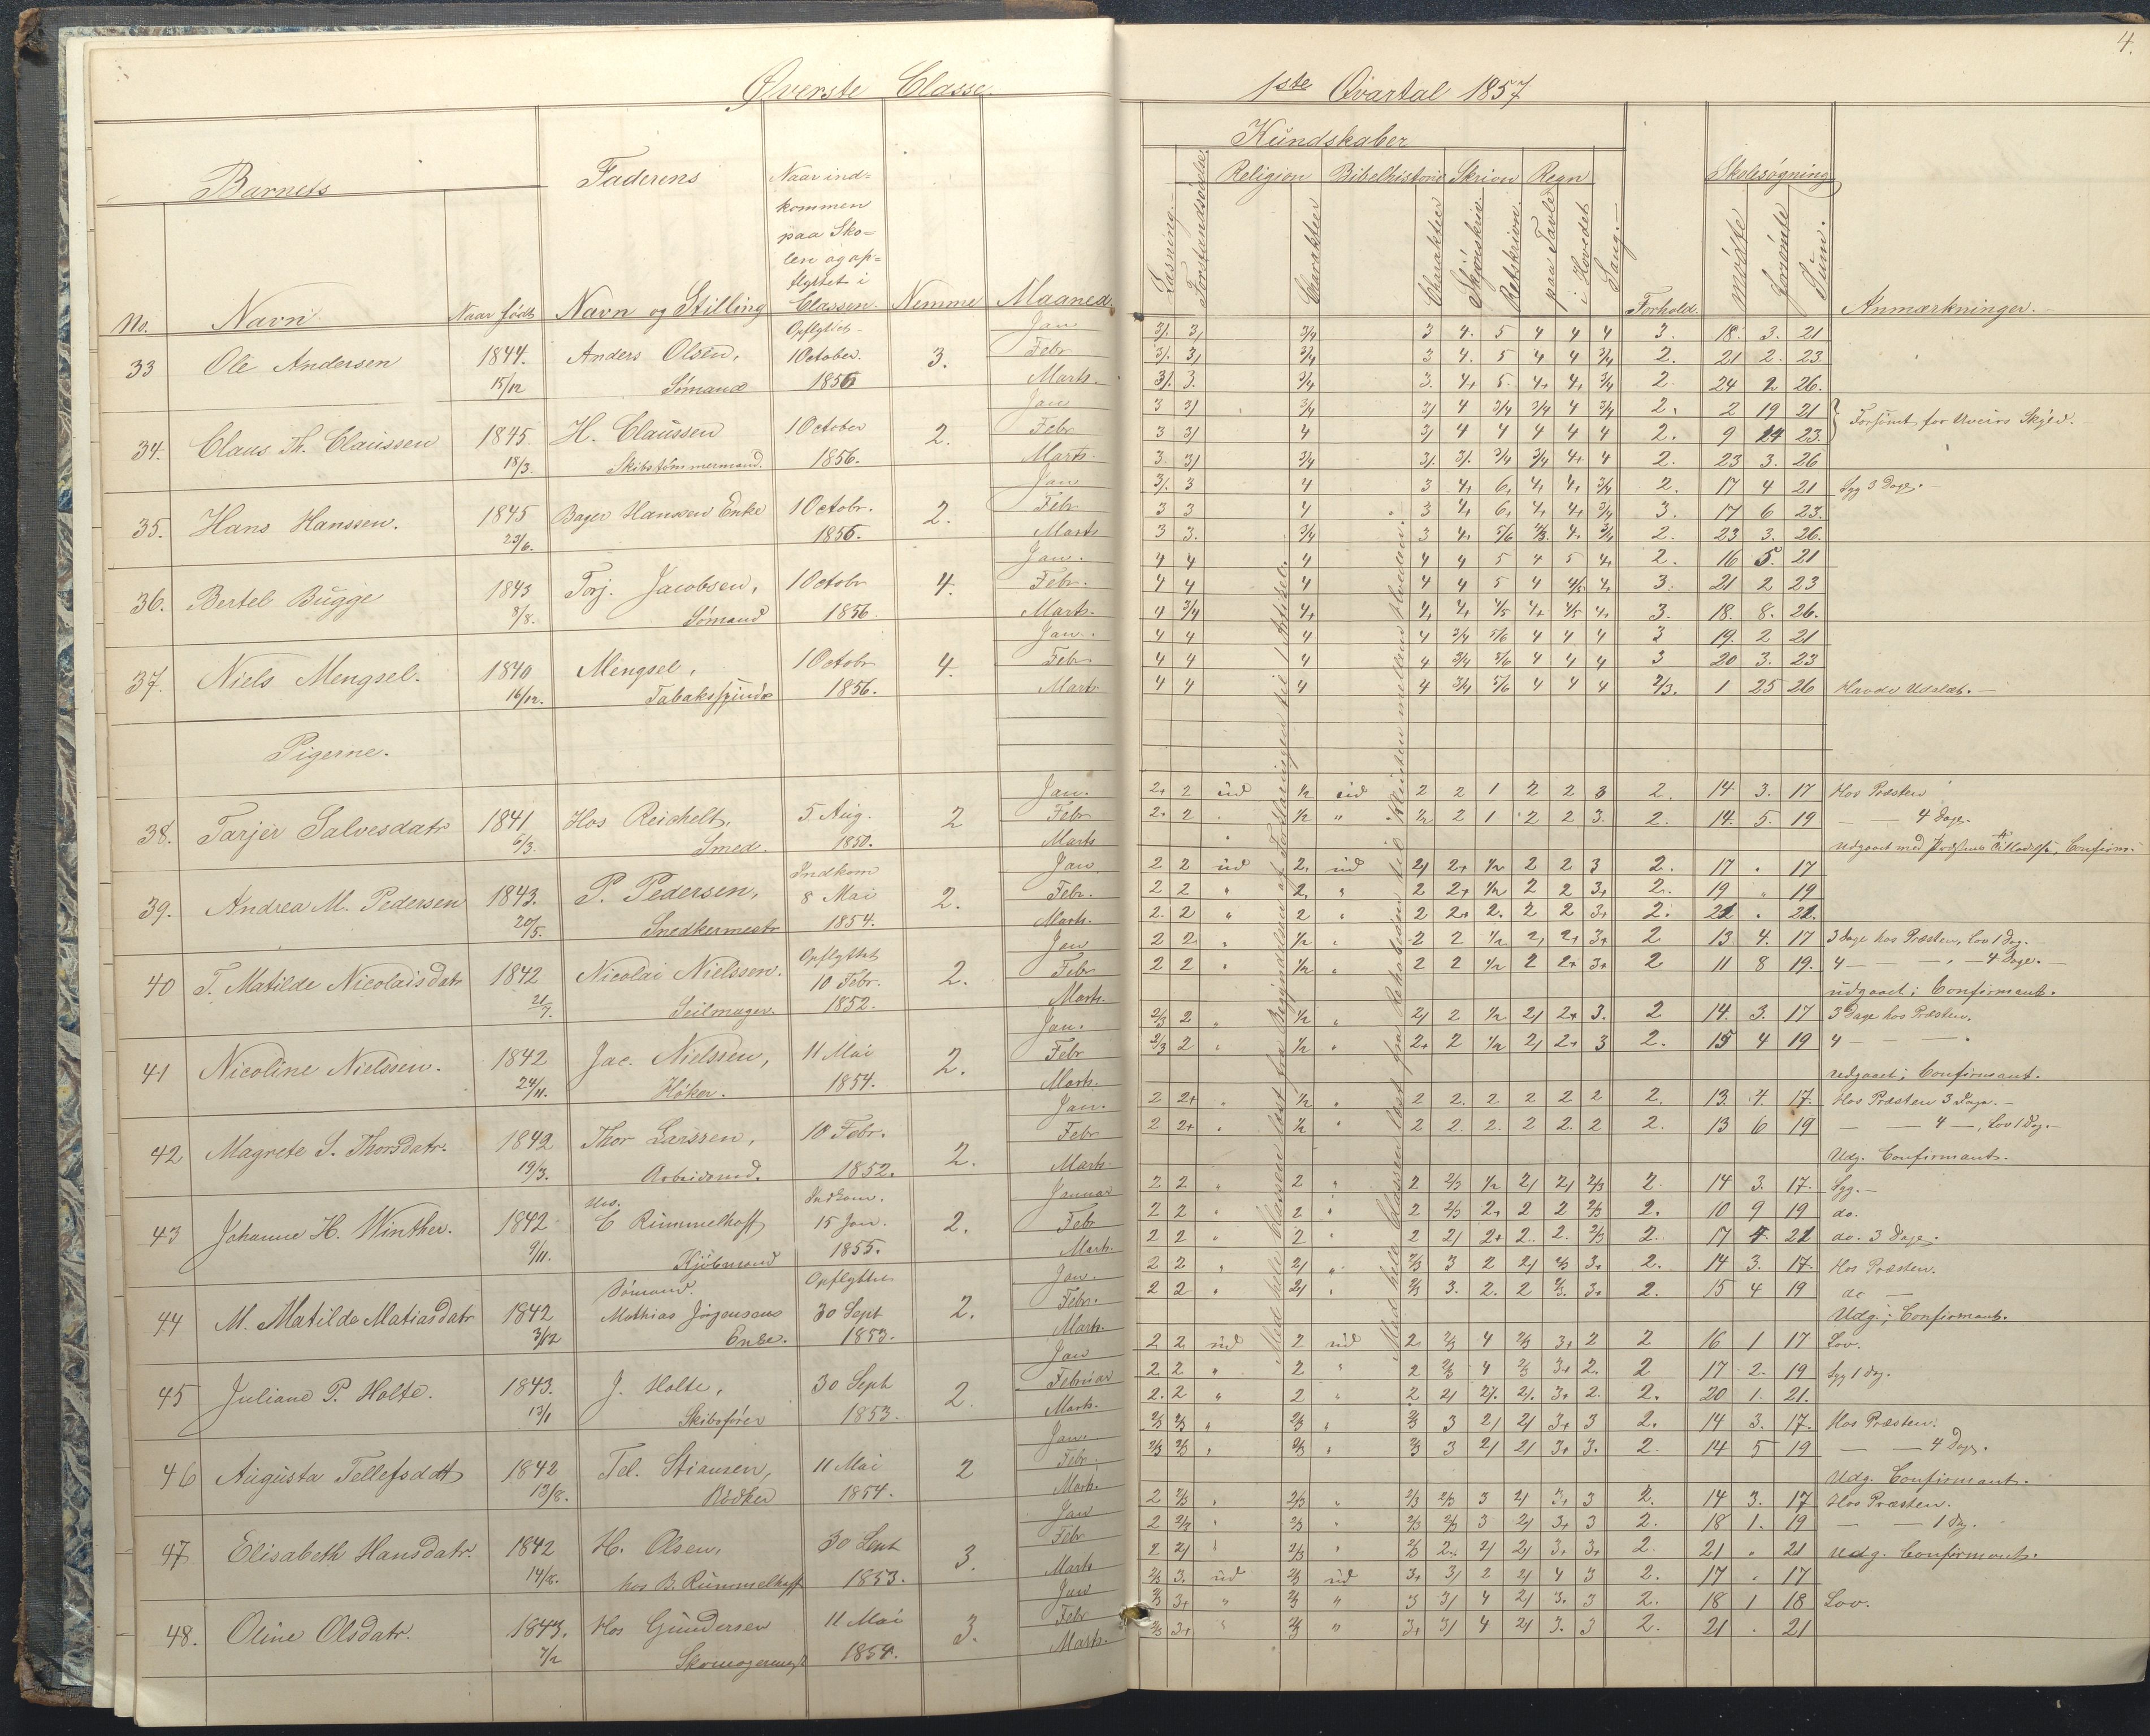 4.
Øverste Classe.
1ste Qvartal 1857
Barnets
Faderens
Naar ind=
kommen
paa Sko=
len og op=
flyttet i
Classen.
Kundskaber
Religion Bibelhistorie Skriven Regn
Skolesøgning
No. Navn Naar født Navn og Stilling Nemme Maaned.
Læsning. Forstandsøvelse. Charakter Charakter Skjönskriv. Retskrivn. paa Tavle i Hovedet Sang.
Forhold. Mødte Forsömte Sum. Anmærkninger.
33 Ole Andersen 1844. 15/12 Anders Olsen, Sömand Opflyttet 1 October. 1856 3.
Jan 3/. 3/ 3/4 3 4. 5 4 4 4 3. 18. 3. 21
Febr 3/. 3/ 3/4 3 4. 5 4 4 3/4 2. 21 2. 23
Marts. 3/. 3. 3/4 3. 4+ 5. 4+ 4+ 3/4 2. 24 2 26.
34. Claus Th. Claussen 1845. 18/3. H. Claussen Skibstömmermand. 1 October 1856. 2.
Jan 3 3/ 3/4 3/ 4 3/4 3/4 4 3/4 2. 2 19 21 Forsömt for Uveirs Skyld.
Febr 3 3/ 4 3/ 4 4 4 4 4 2. 9 14 23.
Marts. 3. 3/ 3/4 3/. 3/. 3/4 3/4 4+ 4 2. 23 3. 26
35. Hans Hanssen. 1845 23/6. Bager Hanssen Enke 1 Octobr. 1856. 2.
Jan 3/. 3 4 3 4+ 6+ 4+ 4+ 3/4 2. 17 4 21 Syg 3 Dage.
Febr 3 3 4 3 4+ 6+ 4+ 4+ 3/4 3. 17 6 23.
Marts 3 3. 3/4 3 4+ 5/6 4/5. 4+ 3/4 2. 23 3. 26.
36. Bertel Bugge 1843 8/8. Torj. Jacobsen, Sömand 1 Octobr 1856. 4.
Jan. 4 4 4 4 4 5 4 5 4+ 2. 16 5. 21
Febr. 4 4 4 4 4 5 4 4/5 4+ 3. 21 2 23
Marts. 4 3/4 4+ 4+ 4+ 4/5 4+ 4/5 4+ 3. 18. 8. 26.
37. Niels Mengsel. 1840 16/12. Mengsel, Tabaksspinder 1 Octobr 1856. 4.
Jan. 4 4 4 4 3/4 5/6 4 4 4 3 19. 2 21
Febr 4 4 4 4 3/4 5/6 4 4 4 3 20 3. 23
Marts 4 4 4 4 3/4 5/6 4 4 4 2/3. 1 25 26 Havde Udslæt.
Pigerne.
38. Tarjer Salvesdatr 1841 6/3. Hos Reichelt, Smed. 5. Aug. 1850. 2
Jan. 2+ 2 ud 1/2 ud 2 2 1 2 2 3 2. 14. 3. 17 Hos Præsten
Febr 2+ 2 1/2 " 1/2 2 1 2 2 3. 2. 14. 5. 19 — — 4 Dage.
Marts Udgaaet med Præstens Tilladelse, Confirm.
39. Andrea M. Pedersen 1843. 20/5. P. Pedersen, Snedkermestr Indkom 8 Mai 1854. 2.
Jan. 2 2 ud 2. ud 2/ 2+ 1/2 2 2 3 2. 17 " 17
Febr. 2 2 " 2. " 2 2+ 1/2 2 2 3+ 2. 19 " 19
Marts. 2. 2 " 2 " 2 2+ 2. 2 2 3+ 2. 21 " 21.
40 T. Matilde Nicolaisdatr 1842 21/7. Nicolai Nielssen. Seilmager. Opflyttet 10 Febr. 1852. 2.
Jan 2 2 " 1/2 " 2 2 1/2 2/ 2+ 3+ 2 13. 4. 17 3 Dage hos Præsten, Lov 1 Dag.
Febr 2 2 " 1/2 " 2 2 1/2 2 2+ 3+ 2 11 8 19. 4 — — " — 4 Dage.
Marts. udgaaet; Confirmant.
41 Nicoline Nielssen. 1842 24/11. Jac. Nielssen, Höker. 11 Mai 1854. 2.
Jan. 2/3 2 " 1/2 " 2/ 2 1/2 2/ 2+ 3. 2 14. 3. 17 3 Dage hos Præsten.
Febr 2/3 2 " 1/2 " 2+ 2 1/2 2/ 2+ 3 2. 15 4 19 4 — — — .
Marts. udgaaet; Confirmant.
42 Magrete S. Thorsdatr. 1842 19/3. Thor Larssen, Arbeidsmd. 10 Febr. 1852. 2.
Jan. 2 2+ " 1/2 " 2 2. 2 2 2 2 2. 13. 4. 17. Hos Præsten 3 Dage.
Febr 2 2+ " 1/2 " 2 2. 2. 2 2. 2 2. 13 6 19 — — 4 —, Lov 1 Dag.
Marts. Udg. Confirmant.
43 Johanne H. Winther. 1842 9/11. Hos. C Rummelhoff Kjöbmand Indkom. 15 Jan. 1855. 2.
Januar 2 2 " 2 " 2 2/3 1/2 2/ 2/ 2/3 2. 14 3. 17. Syg.
Febr 2 2 " 2 " 2 2/3 2+ 2 2 2/3 2. 10 9 19 do.
Marts. 2 2 " 2 " 2 2/ 2+ 2. 2. 2/3 2. 17 4. 21 do. 3 Dage.
44 M. Matilde Matiasdatr 1842 3/12 Sömand. Mathias Jörgensens Enke. Opflyttet 30 Sept 1853. 2.
Jan. 2 2 " 2/ " 2/3 3 2 2/ 2/3 3+ 2. 14 3. 17. Hos Præsten.
Febr. 2 2 " 2/ " 2/3 3. 2. 2 2/3. 3+ 2. 15 4 19 do —
Marts. Udg.; Confirmant.
45 Juliane P. Holte. 1843. 13/1 J. Holte, Skibsfører 30 Sept 1853. 2.
Jan 2 2 ud 2 ud 2 2/3 4 2/3 3+ 2 2 16 1 17 Lov.
Februar 2 2 " 2 " 2 2/3 4 2/3 3+ 2. 2 17 2. 19 Syg 1 Dag.
Marts. 2. 2 " 2 " 2 2/ 2/. 2/. 3+ 2. 2. 20 1. 21.
46 Augusta Tellefsdatt 1842 13/8. Tel. Stiansen, Bödker 11 Mai 1854. 2
Jan. 2/3 2/3 " 2/3 " 2/3 3 2/ 2/ 3+ 3 2. 14 3. 17. Hos Præsten.
Febr. 2/3 2/3 " 2/3 " 2/3 3 2/ 2/ 3+ 3. 2. 14 5 19 — — 4 Dage.
Marts. Udg. Confirmant.
47 Elisabeth Hansdatr. 1842 14/8. H. Olsen, hos B. Rummelhoff 30 Sept 1853. 3.
Jan 2 2/3 " 2/3 " 2/3 2/3 3 2/ 3+ 3 2. 14 3. 17 Hos Præsten.
Febr 2 2/3 " 2/3 " 2/3 2/3 3 2/ 3+ 3 2. 18 1. 19 — — 1 Dag.
Marts 2 2/ " 2/3 " 2/3 2. 2/ 2/ 3+ 3+ 2. 21 " 21 Udg. Confirmant.
48. Oline Olsdatr. 1843. 7/2 Hos Gundersen Skomagermest 11 Mai 1854. 3.
Jan 2/3 3. ud 2/3 ud 3+ 3/ 2 2/ 4 3 2. 17 " 17
Febr 2/3 3+ " 2/3 " 3 3/ 4 2/ 3. 3 2. 18 1 18 Lov.
Marts. 2/3 3+ " 2/3 " 3+ 3/ 4 2/ 3. 3 2. 21 . 21
Med hele Classen læst fra Begyndelsen af Forklaringen til 1 Artikel.
Med hele Classen læst fra Rehabeam til